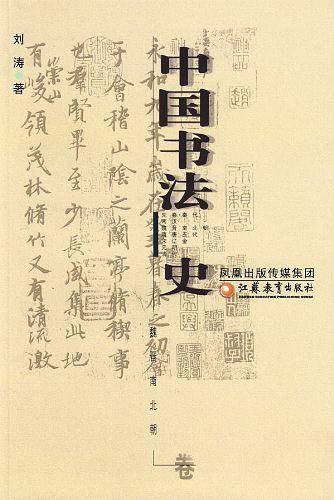 刘涛 著
中国书法史
魏晋南北朝
卷
凤凰出版传媒集团
江苏教育出版社
JIANGSU EDUCATION PUBLISHING HOUSE
永和九年歲在癸丑暮春之初
于會稽山陰之蘭亭脩禊事
也羣賢畢至少長咸集此地
有崇山峻領茂林脩竹又有清流激